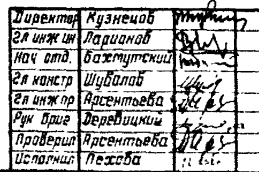 Директор Кузнецов
Гл инж ин Ларианов
Нач отд. Бахмутский
Гл констр Шувалов
Гл инж пр Арсентьева
Рук бриг Деревицкий
Проверил Арсентьева
Исполнил Пехова